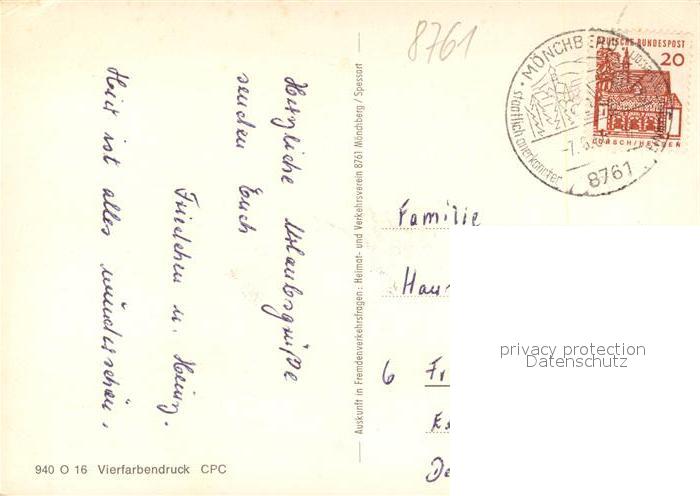 8761
MÖNCHBERG
staatlich anerkannter
8761
DEUTSCHE BUNDESPOST
20
LORSCH/HESSEN
Herzliche Urlaubsgrüße
senden Euch
Friedchen u. Heinz.
Hier ist alles wunderschön.
Auskunft in Fremdenverkehrsfragen: Heimat- und Verkehrsverein 8761 Mönchberg / Spessart
Familie
6
privacy protection
Datenschutz
940 O 16 Vierfarbendruck CPC